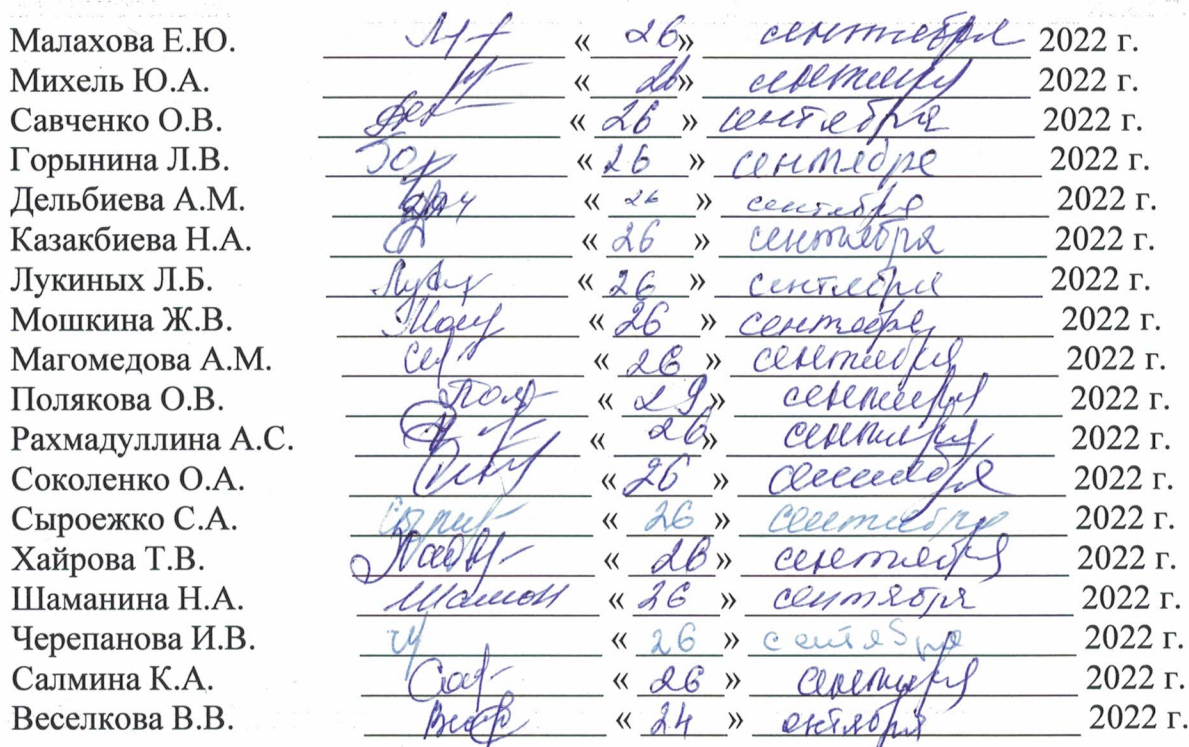 Малахова Е.Ю. « 26» сентября 2022 г.
Михель Ю.А. « 26» сентября 2022 г.
Савченко О.В. « 26 » сентября 2022 г.
Горынина Л.В. « 26 » сентября 2022 г.
Дельбиева А.М. « 26 » сентября 2022 г.
Казакбиева Н.А. « 26 » сентября 2022 г.
Лукиных Л.Б. « 26 » сентября 2022 г.
Мошкина Ж.В. « 26 » сентября 2022 г.
Магомедова А.М. « 26 » сентября 2022 г.
Полякова О.В. « 29 » сентября 2022 г.
Рахмадуллина А.С. « 26» сентября 2022 г.
Соколенко О.А. « 26 » сентября 2022 г.
Сыроежко С.А. « 26 » сентября 2022 г.
Хайрова Т.В. « 26» сентября 2022 г.
Шаманина Н.А. Шаман « 26 » сентября 2022 г.
Черепанова И.В. « 26 » сентября 2022 г.
Салмина К.А. « 26 » сентября 2022 г.
Веселкова В.В. « 24 » октября 2022 г.